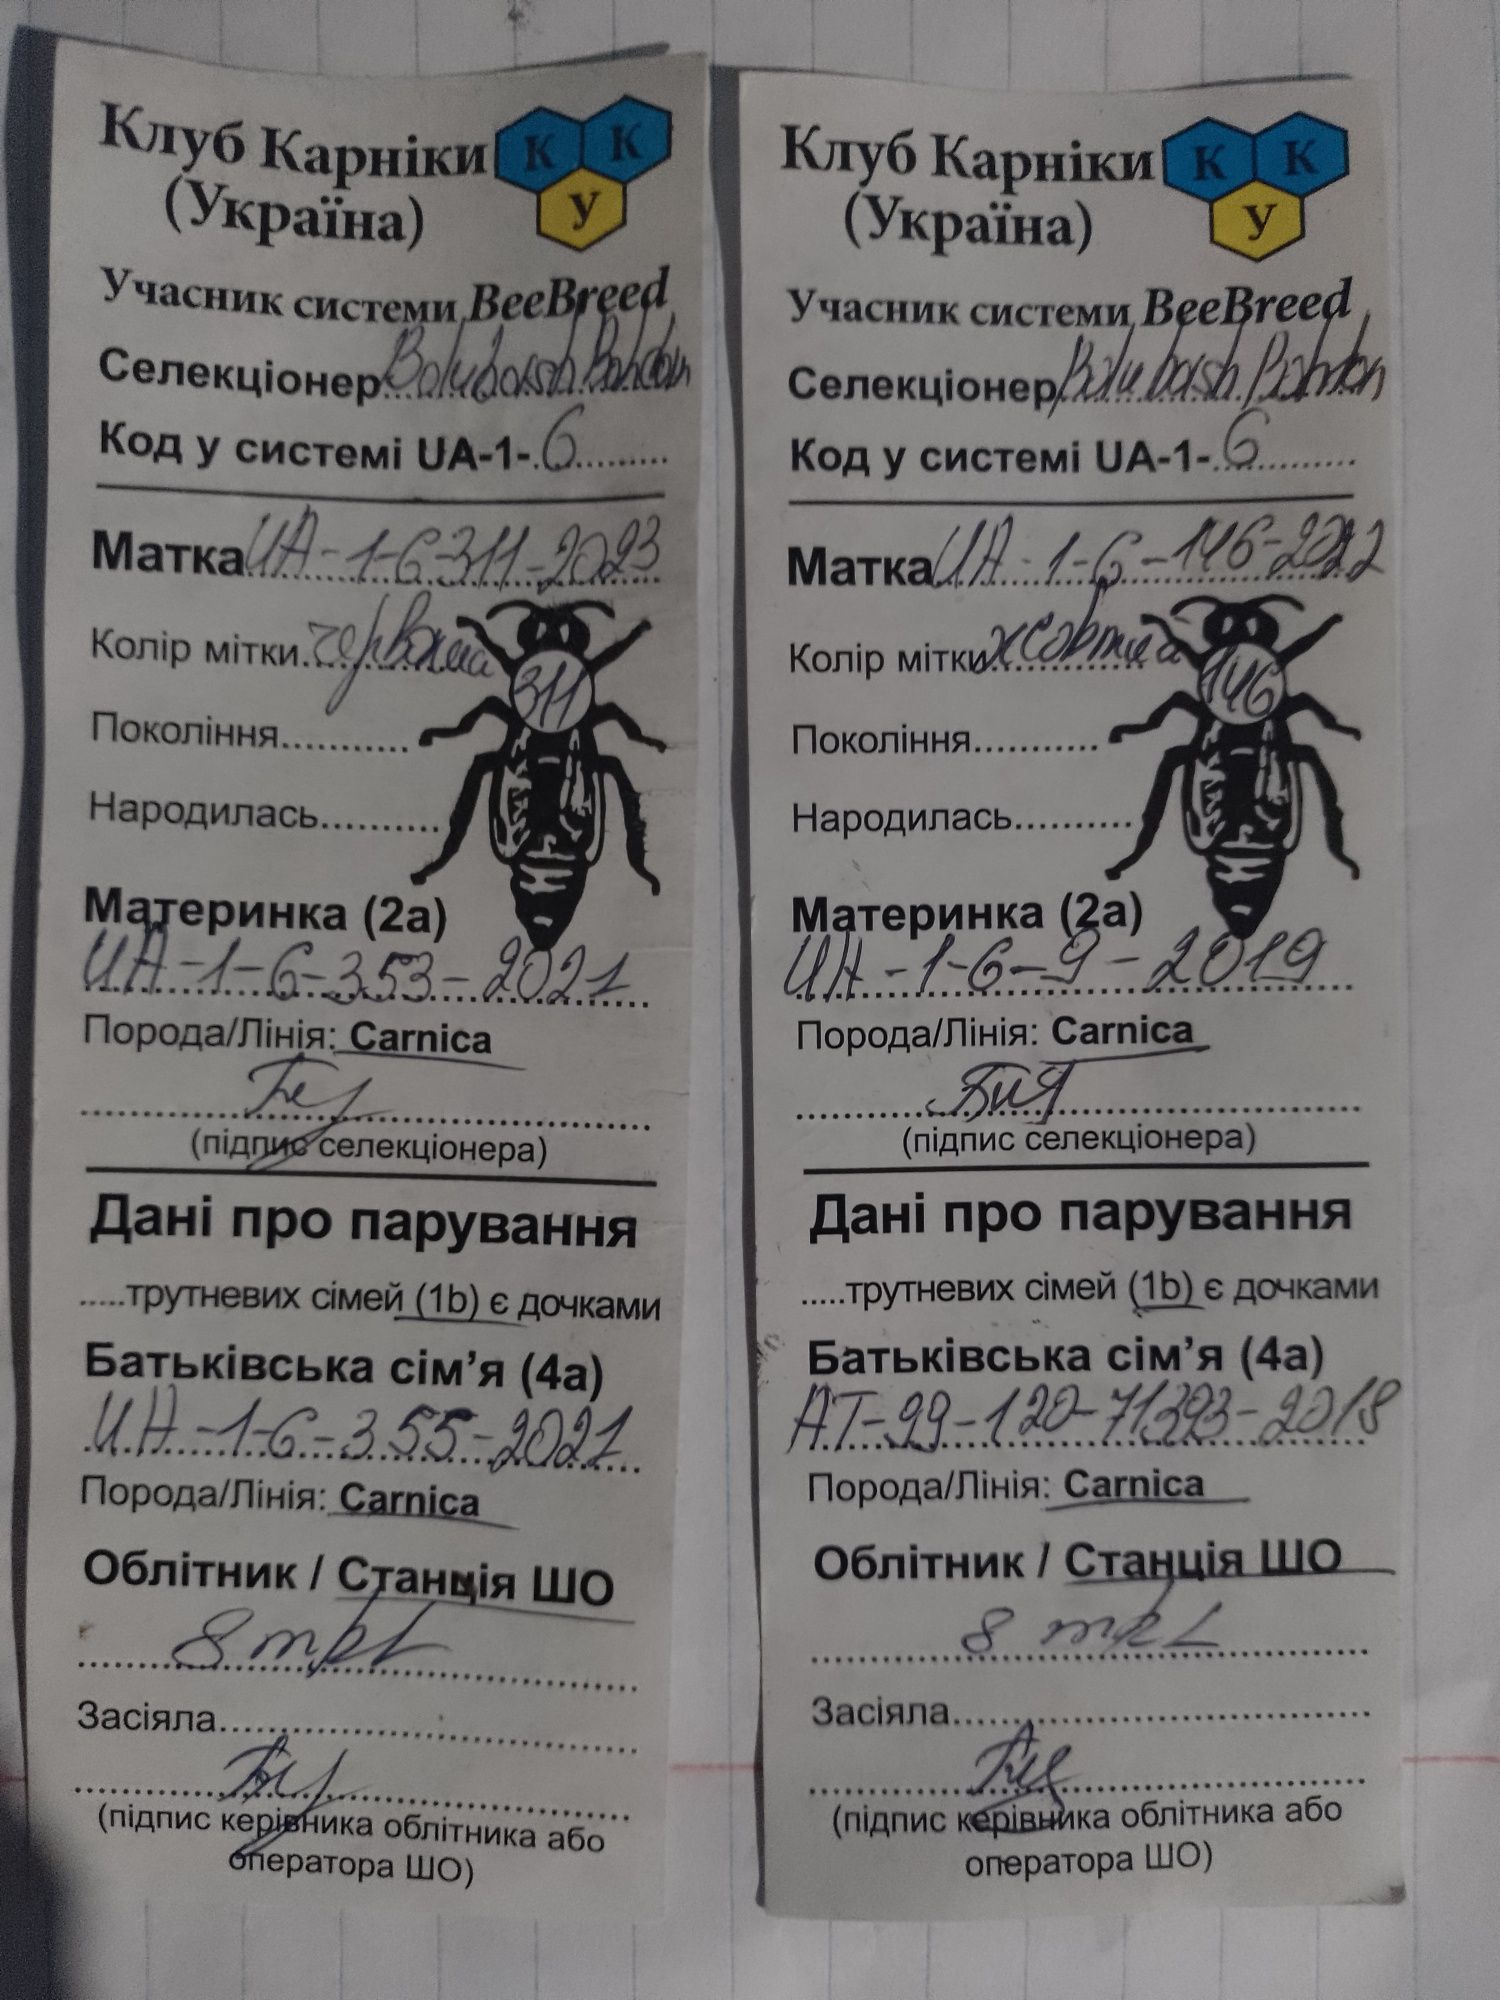 Клуб Карніки
(Україна)
К К
У
Учасник системи BeeBreed
Селекціонер
Код у системі UA-1-6
Матка UA-1-6-311-2023
Колір мітки червона
311
Покоління
Народилась
Материнка (2а)
UA-1-6-353-2021
Порода/Лінія: Carnica
(підпис селекціонера)
Дані про парування
.....трутневих сімей (1b) є дочками
Батьківська сім’я (4а)
UA-1-6-355-2021
Порода/Лінія: Carnica
Облітник / Станція ШО
8
Засіяла
(підпис керівника облітника або
оператора ШО)
Клуб Карніки
(Україна)
К К
У
Учасник системи BeeBreed
Селекціонер
Код у системі UA-1-6
Матка UA-1-6-146-2022
Колір мітки жовтиа
146
Покоління
Народилась
Материнка (2а)
UA-1-6-9-2019
Порода/Лінія: Carnica
(підпис селекціонера)
Дані про парування
.....трутневих сімей (1b) є дочками
Батьківська сім’я (4а)
AT-99-120-71393-2018
Порода/Лінія: Carnica
Облітник / Станція ШО
8
Засіяла
(підпис керівника облітника або
оператора ШО)